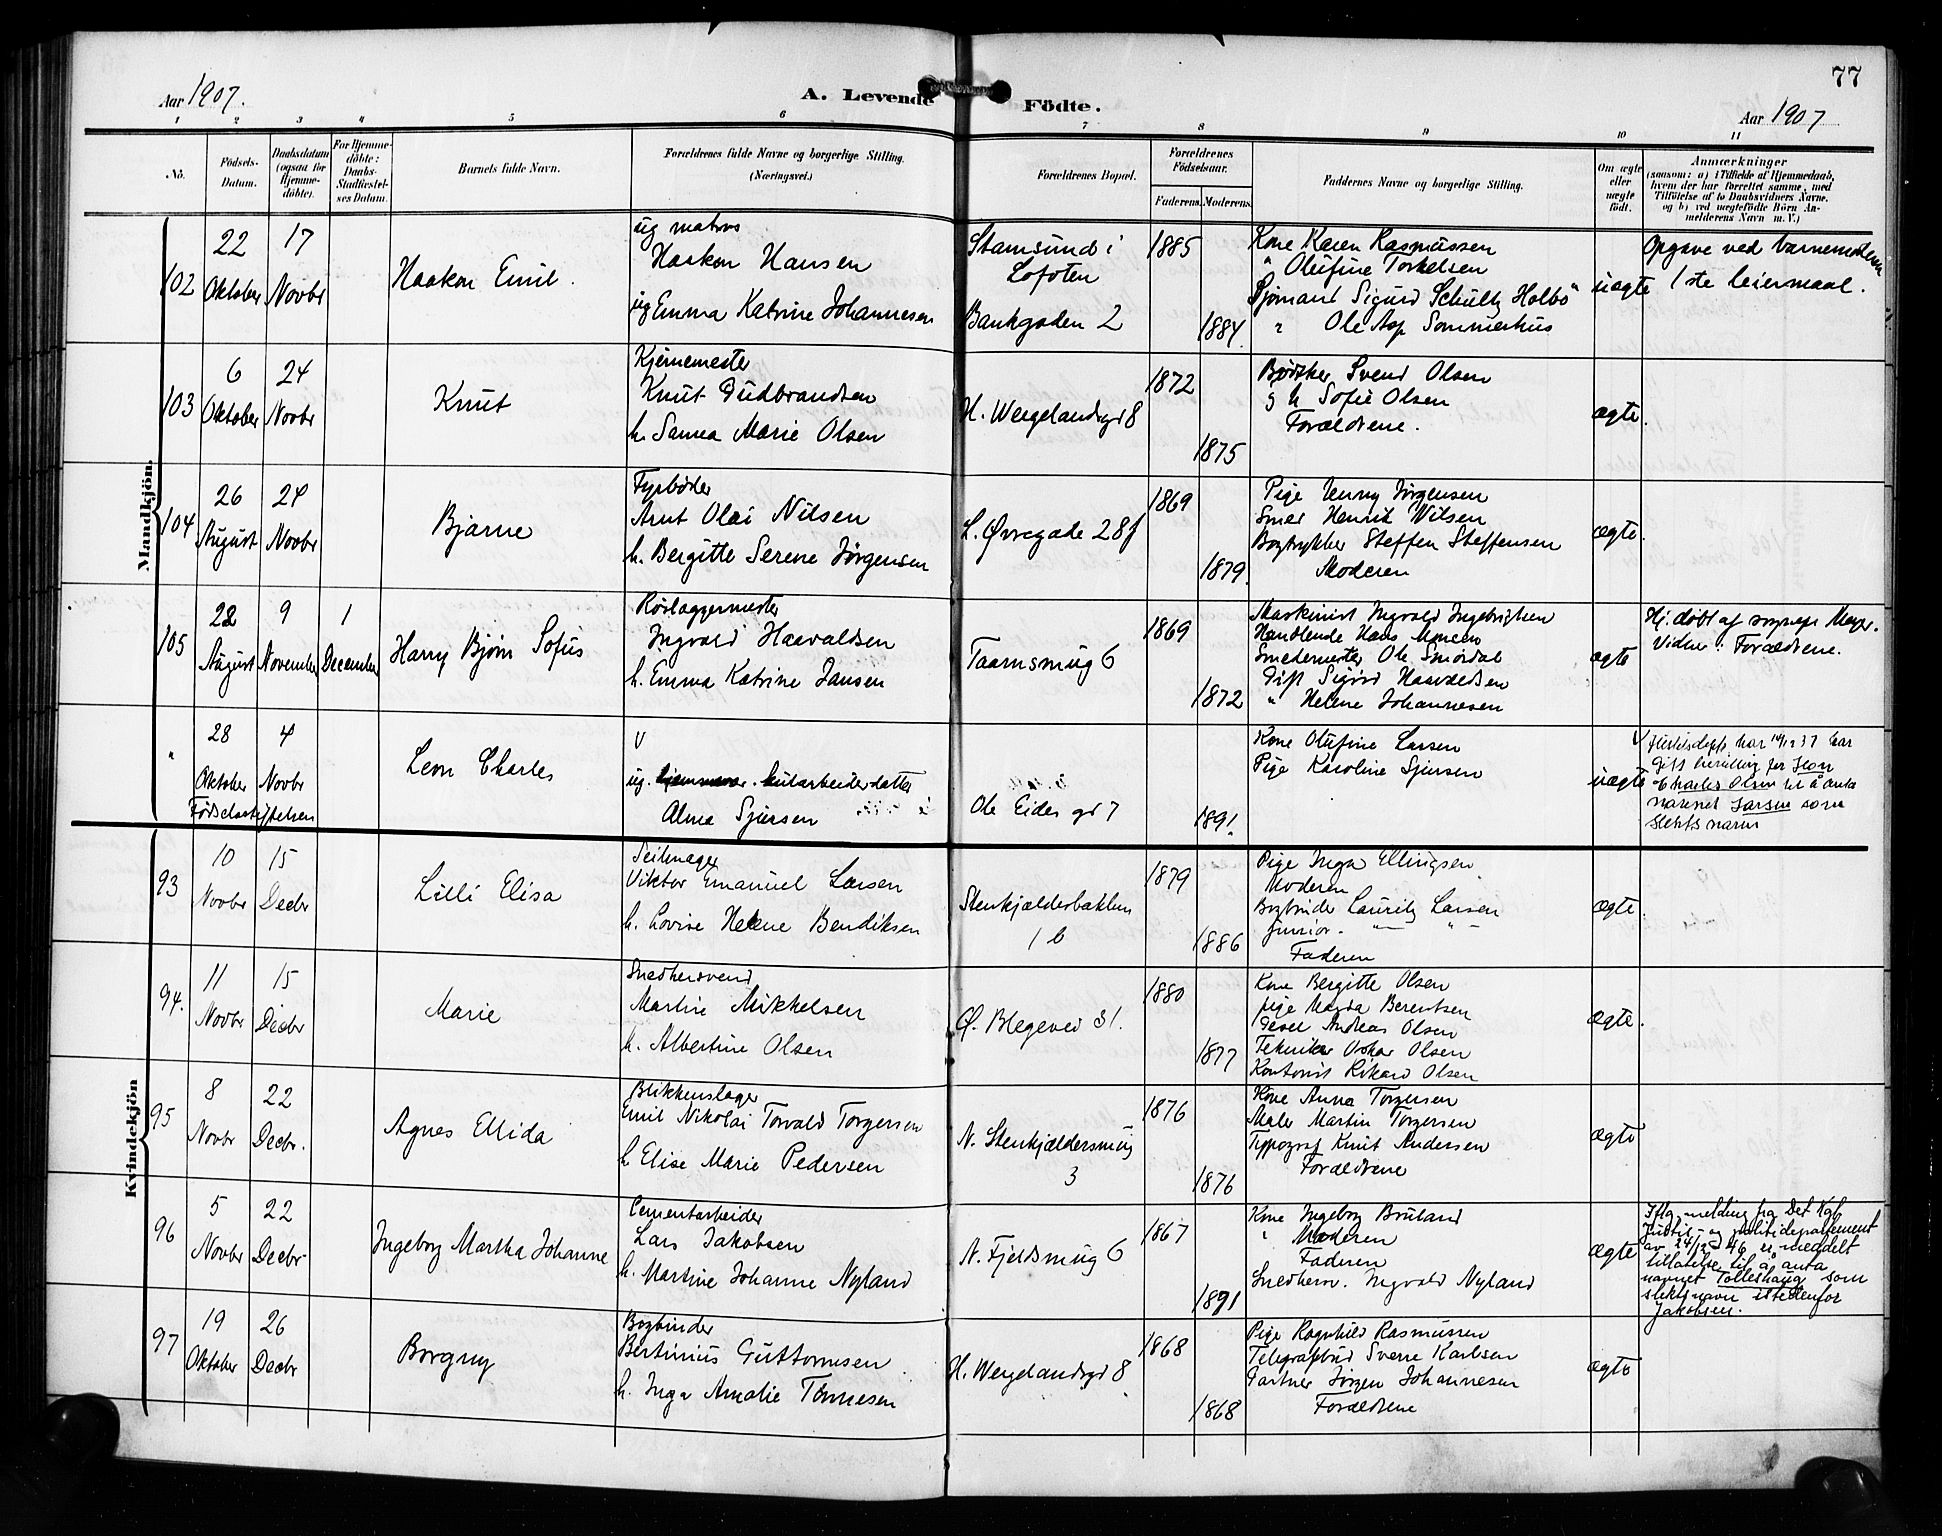 77
Aar 1907.
A. Levende Födte.
Aar 1907
1 2 3 4 5 6 7 8 9 10 11
No.
Födsels-
Datum.
Daabsdatum
(ogsaa for
Hjemme-
döbte).
For Hjemme-
döbte:
Daabs-
Stadfæstel-
ses Datum.
Barnets fulde Navn.
Forældrenes fulde Navne og borgerlige Stilling.
(Næringsvei.)
Forældrenes Bopæl.
Forældrenes
Födselsaar.
Faderens. Moderens.
Faddernes Navne og borgerlige Stilling.
Om ægte
eller
uægte
födt.
Anmærkninger
(saasom: a) i Tilfælde af Hjemmedaab,
hvem der har forrettet samme, med
Tilföielse af to Daabsvidners Navne.
og b) ved uægtefödte Börn An-
melderens Navn m. V.)
Mandkjön.
102
22
Oktober
17
Novbr
Haakon Emil.
ug matros
Haakon Hansen
ug Emma Katrine Johannesen
Stamsund i
Lofoten
Bankgaden 2
1885
1884.
Kone Karen Rasmussen
" Olufine Torkelsen
Sjømand Sigurd Schultz Holbø
" Ole Asp Sommerhus
uægte
Opgave ved barnemoderen
1ste leiermaal.
103
6
Oktober
24
Novbr
Knut
Kjernemester
Knut Gudbrandsen
h. Sanna Marie Olsen
H. Wergelandsgd 8
1872
1875
Bødker Svend Olsen
g h Sofie Olsen
Forældrene.
ægte.
104
26
August
24
Novbr
Bjarne
Fyrbøder
Arnt Olai Nilsen
h. Bergitte Serene Jørgensen
L. Øvregade 28f
1869
1879.
Pige Jenny Jørgensen
Smed Henrik Nilsen
Bogtrykker Steffen Steffensen
Moderen
ægte.
105
28
August
9
November
1
December
Harry Bjørn Sofus
Rørlæggermester
Ingvald Haavaldsen
h. Emma Katrine Jansen
Taarnsmug 6
1869
1872
Maskinist Ingvald Ingebrigtsen
Handlende Hans Monsen
Smedemester Ole Smørdal
Gift Sigrid Haavaldsen
" Helene Johannesen
ægte
Hj. døbt af sognepr Meyer.
Vidner: Forældrene.
"
28
Oktober
4
Novbr
Fødselsstiftelsen
Leon Charles
V
ug. butarbeiderdatter
Alma Sjursen
Ole Eides gd 7
1891.
Kone Olufine Larsen
Pige Karoline Sjursen
uægte
V Justitsdept. har 14/12 37
gitt bevilling for Leon
Charles Olsen til å anta
navnet Larsen som
slektsnavn
Kvindekjön
93
10
Novbr
15
Decbr
Lilli Elisa
Seilmager
Viktor Emanuel Larsen
h. Lovise Helene Bendiksen
Stenkjælderbakken
1 b
1879
1886
Pige Inga Ellingsen
Moderen
Bogbinder Lauritz Larsen
junior. " "
Faderen
ægte.
94.
11
Novbr
15
Decbr
Marie
Snedkersvend
Martin Mikkelsen
h. Albertine Olsen
Ø. Blegevei 31.
1880
1877
Kone Bergitte Olsen
pige Magda Berentsen
Gesel Andreas Olsen
Tekniker Oskar Olsen
Kontorist Rikard Olsen
ægte.
95
8
Novbr
22
Decbr.
Agnes Ellida
Blikkenslager
Emil Nikolai Torvald Torgersen
h Elise Marie Pedersen
N. Stenkjældersmug
3
1876
1876
Kone Anna Torgersen
Maler Martin Torgersen
Typograf Knut Andersen
Forældrene
ægte
96
5
Novbr
22
Decbr
Ingeborg Martha Johanne
Cementarbeider
Lars Jakobsen
h. Martine Johanne Nyland
N. Fjeldsmug 6
1867
1871
Kone Ingeborg Bruland
" Moderen
Faderen
Snedkersv. Ingvald Nyland
ægte
Iflg. melding fra Det Kgl
Justis- og politidepartement
av 24/1 - 46 er meddelt
tillatelse til å anta
navnet Tolleshaug som
slektsnavn istedenfor
Jakobsen.
97
19
Oktober
26
Decbr
Borgny
Bogbinder
Bertinius Guttormsen
h. Inga Amalie Tønnesen
H. Wergelandsgd 8
1868
1868
Pige Ragnhild Rasmussen
Telegrafbud Sverre Karlsen
Gartner Jørgen Johannesen
Forældrene
ægte